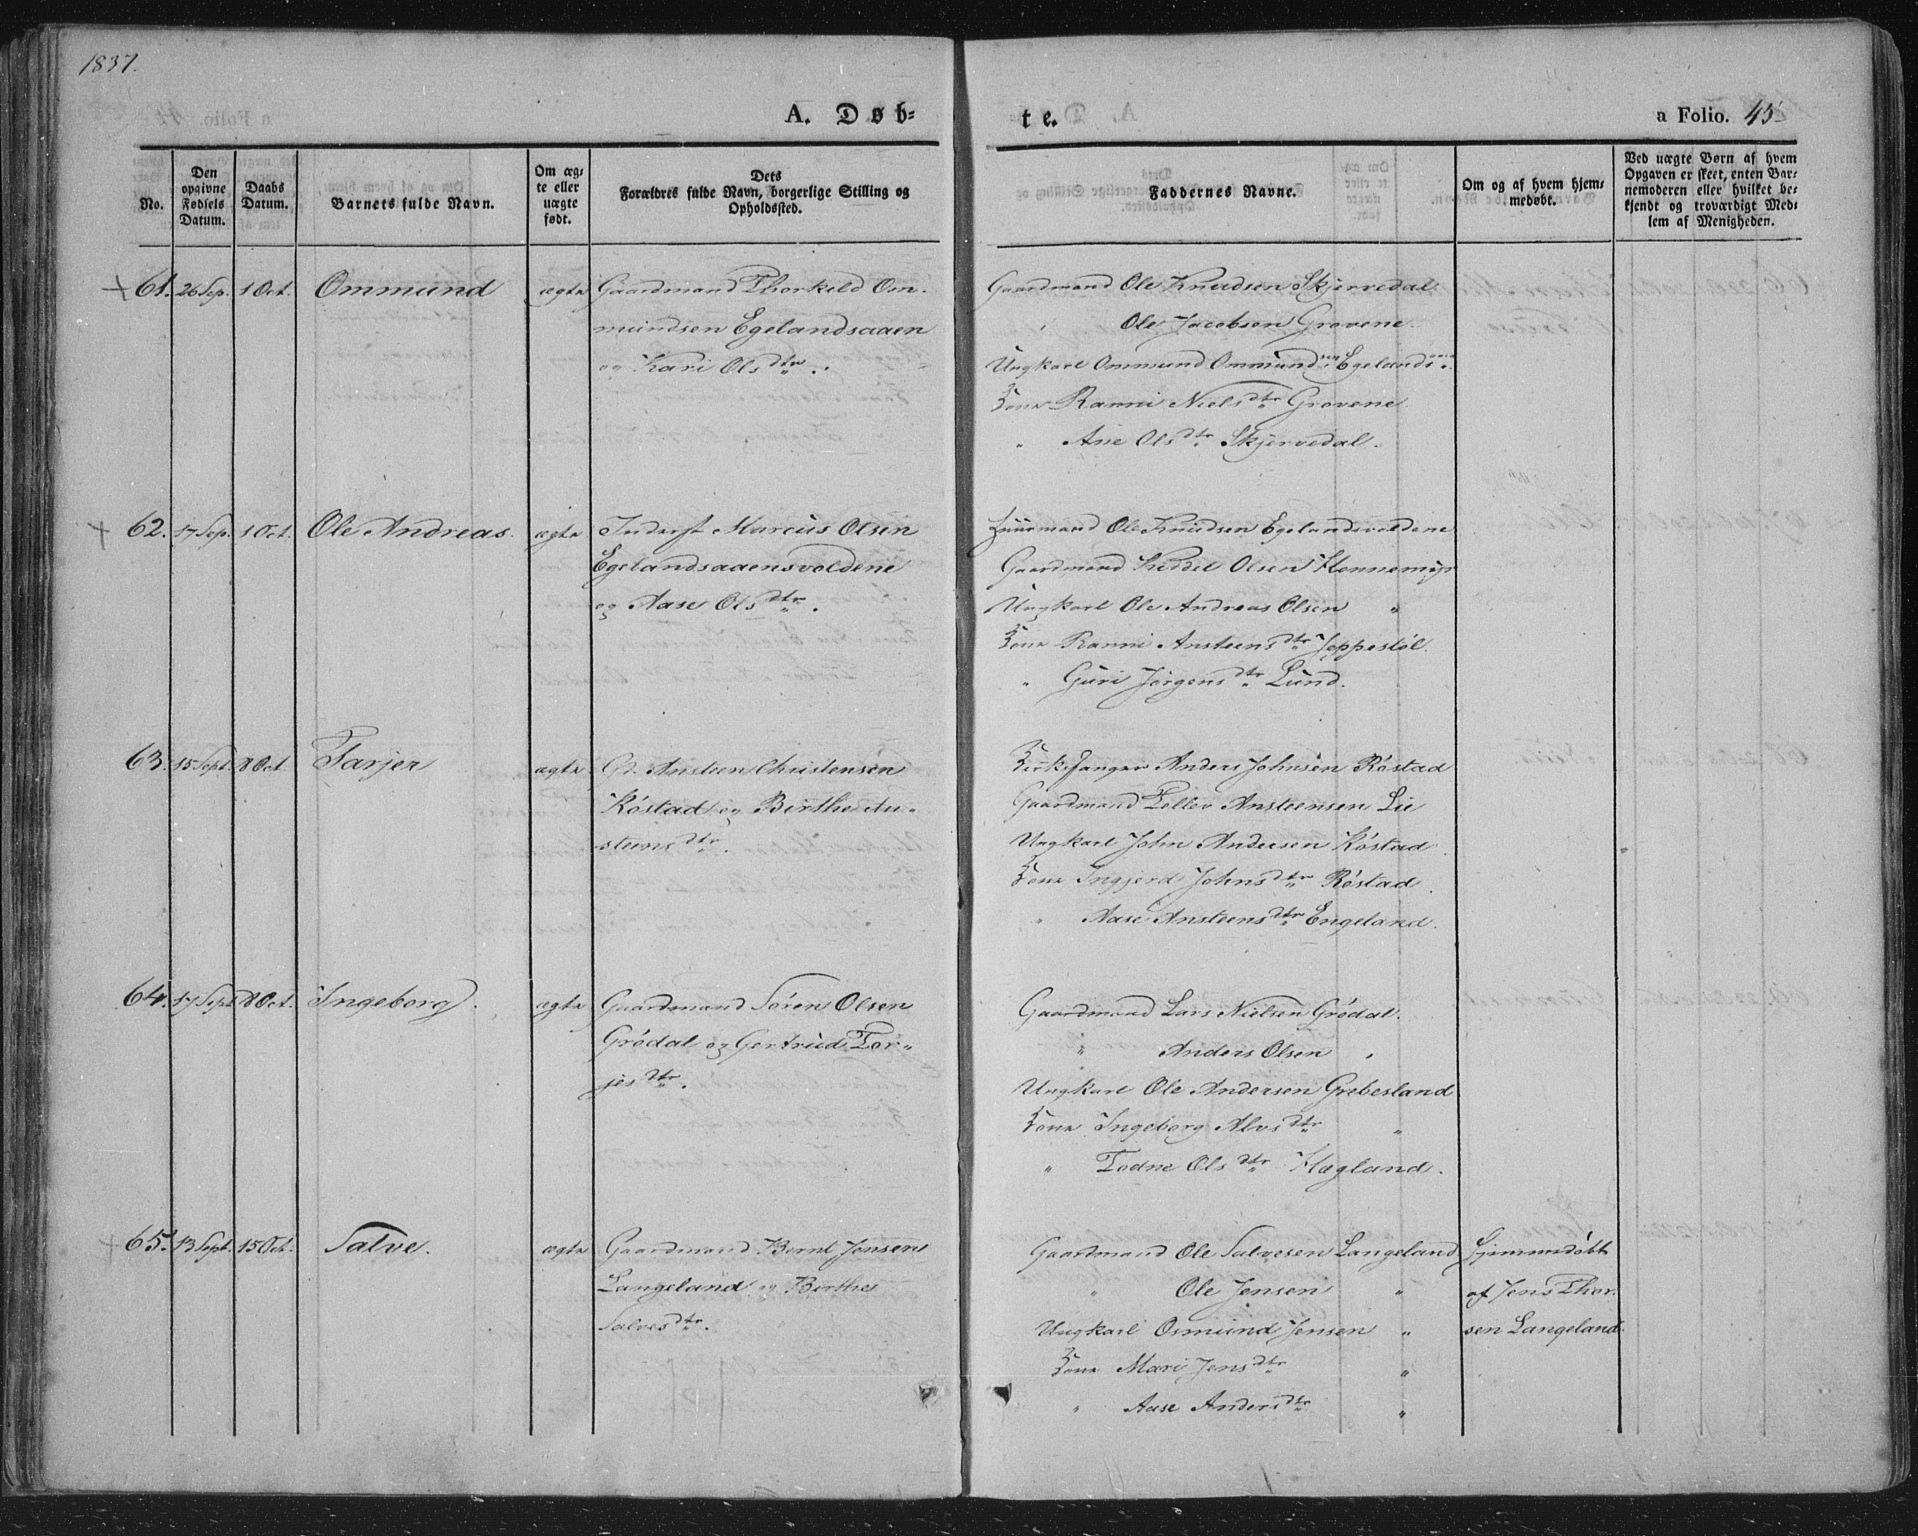 1837.
A. Døb=
te.
a Folio. 45
No.
Den opgivne Fødsels Datum.
Daabs Datum.
Barnets fulde Navn.
Om ægte eller uægte født.
Dets Forældres fulde Navn, borgerlige Stilling og Opholdssted.
Faddernes Navne.
Om og af hvem hjemmedøbt.
Ved uægte Børn af hvem Opgaven er skeet, enten Barnemoderen eller hvilket bekjendt og troværdigt Medlem af Menigheden.
61. 26 Sep. 1 Oct. Ommund ægte
Gaardmand Thorkild Om-
mundsen Egelandsaaen
og Kari Olsdtr.
Gaardmand Ole Knudsen Skjervedal
" Ole Jacobsen Grovene.
Ungkarl Ommund Ommundsen Egelands
Kone Ranni Nielsdtr Grovene
" Ane Olsdtr Skjervedal.
62. 17 Sep. 1 Oct. Ole Andreas. ægte
Inderst Marcus Olsen
Egelandsaaensvoldene
og Aase Olsdtr.
Huusmand Ole Knudsen Egelandsvoldene
Gaardmand Keddel Olsen Honnemyr
Ungkarl Ole Andreas Olsen "
Kone Ranni Ansteensdtr Jeppestöl.
" Guri Jörgensdtr Lund.
63. 15 Sept. 8 Oct. Tarjer ægte
Gd. Ansteen Christensen
Röstad og Birthe An-
steensdtr.
Kirkesanger Anders Johnsen Röstad
Gaardmand Tellev Ansteensen Lie
Ungkarl John Andersen Röstad
Kone Ingjerd Johnsdtr Röstad.
" Aase Ansteensdtr Engeland.
64. 17 Sept 8 Oct. Ingeborg. ægte
Gaardmand Sören Olsen
Grödal og Gertrud Tor-
jesdtr.
Gaardmand Lars Nielsen Grödal.
" Anders Olsen "
Ungkarl Ole Andersen Grebesland
Kone Ingeborg Alvsdtr "
" Todne Olsdtr Hægland.
65. 13 Sept. 15 Oct. Salve. ægte
Gaardmand Bernt Jensen
Langeland og Birthe
Salvesdtr.
Gaardmand Ole Salvesen Langeland
" Ole Jensen "
Ungkarl Osmund Jensen "
Kone Mari Jensdtr "
" Aase Andersdtr "
Hjemmedöbt
af Jens Thor-
sen Langeland.